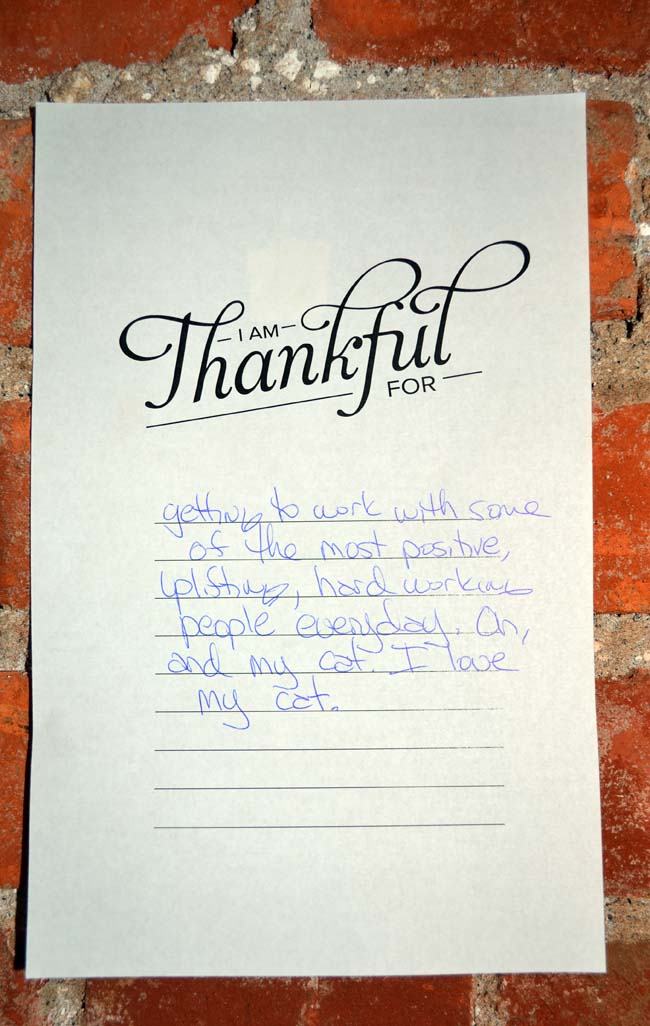 I AM
Thankful
FOR
getting to work with some
of the most positive,
uplifting, hard working
people everyday. Oh,
and my cat. I love
my cat.